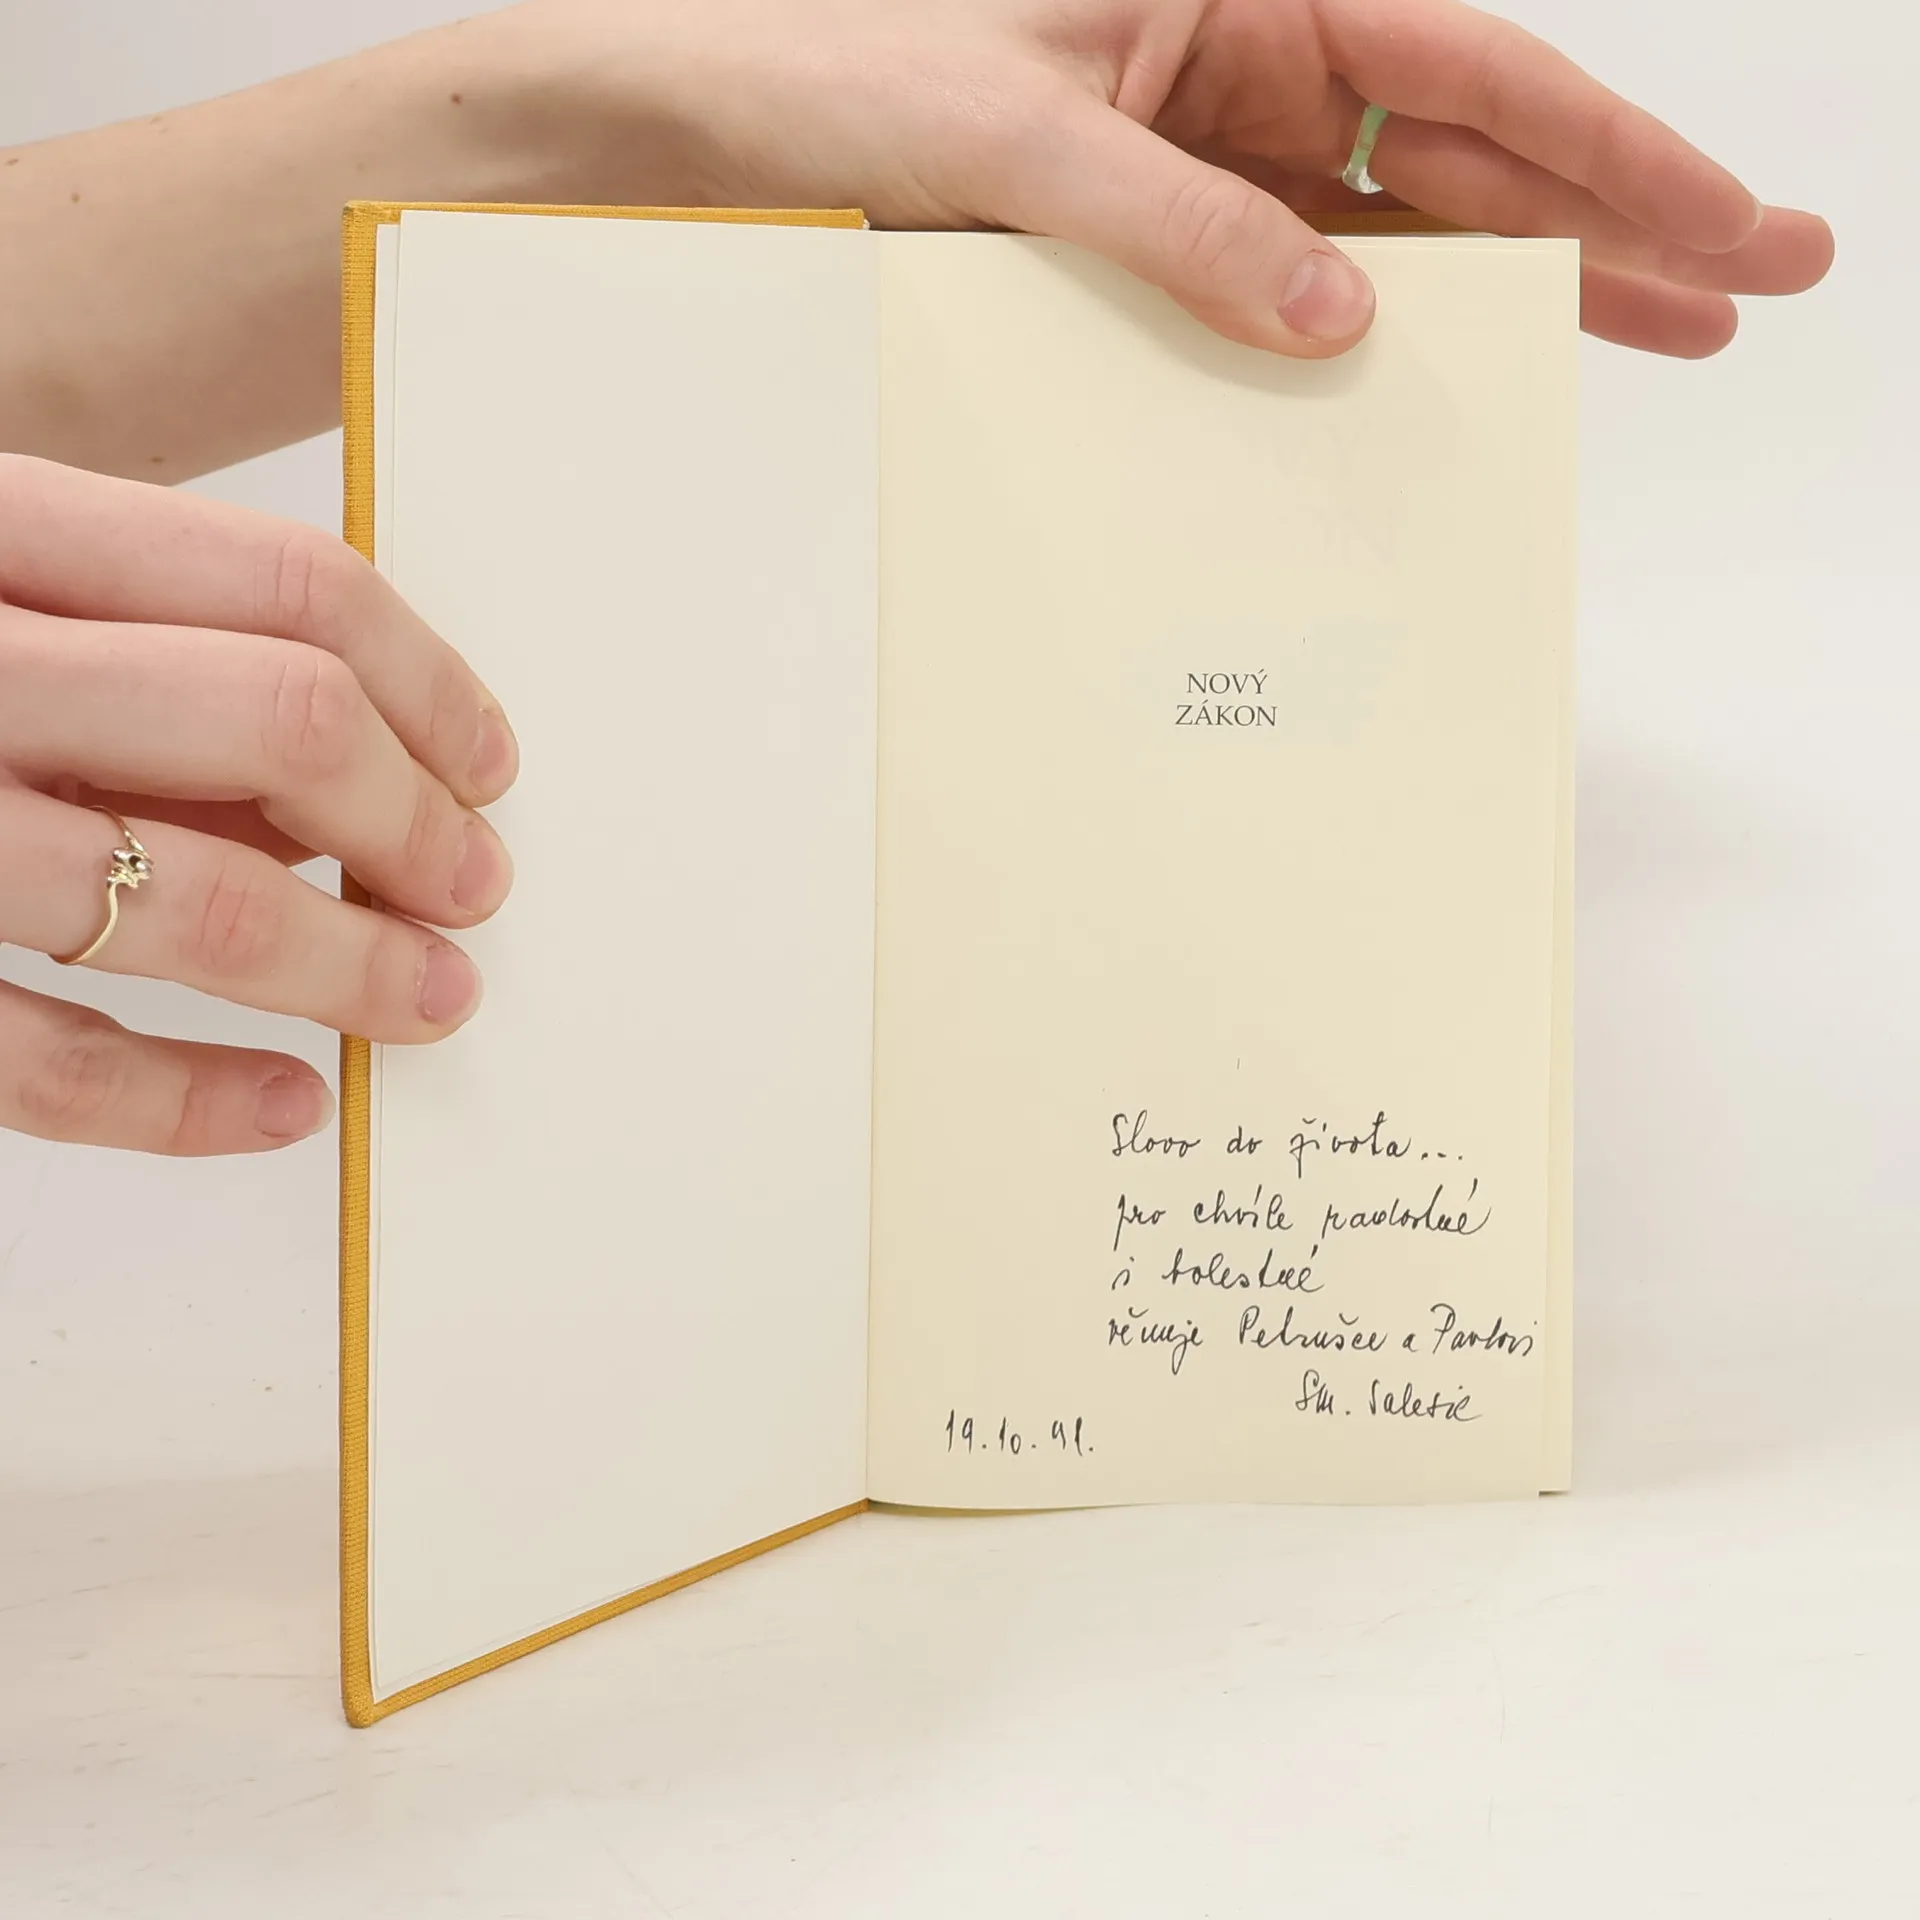 NOVÝ
ZÁKON
Slovo do života...
pro chvíle radostné
i bolestné
věnuje Petrušce a Pavlovi
SM. Salesie
19.10.91.